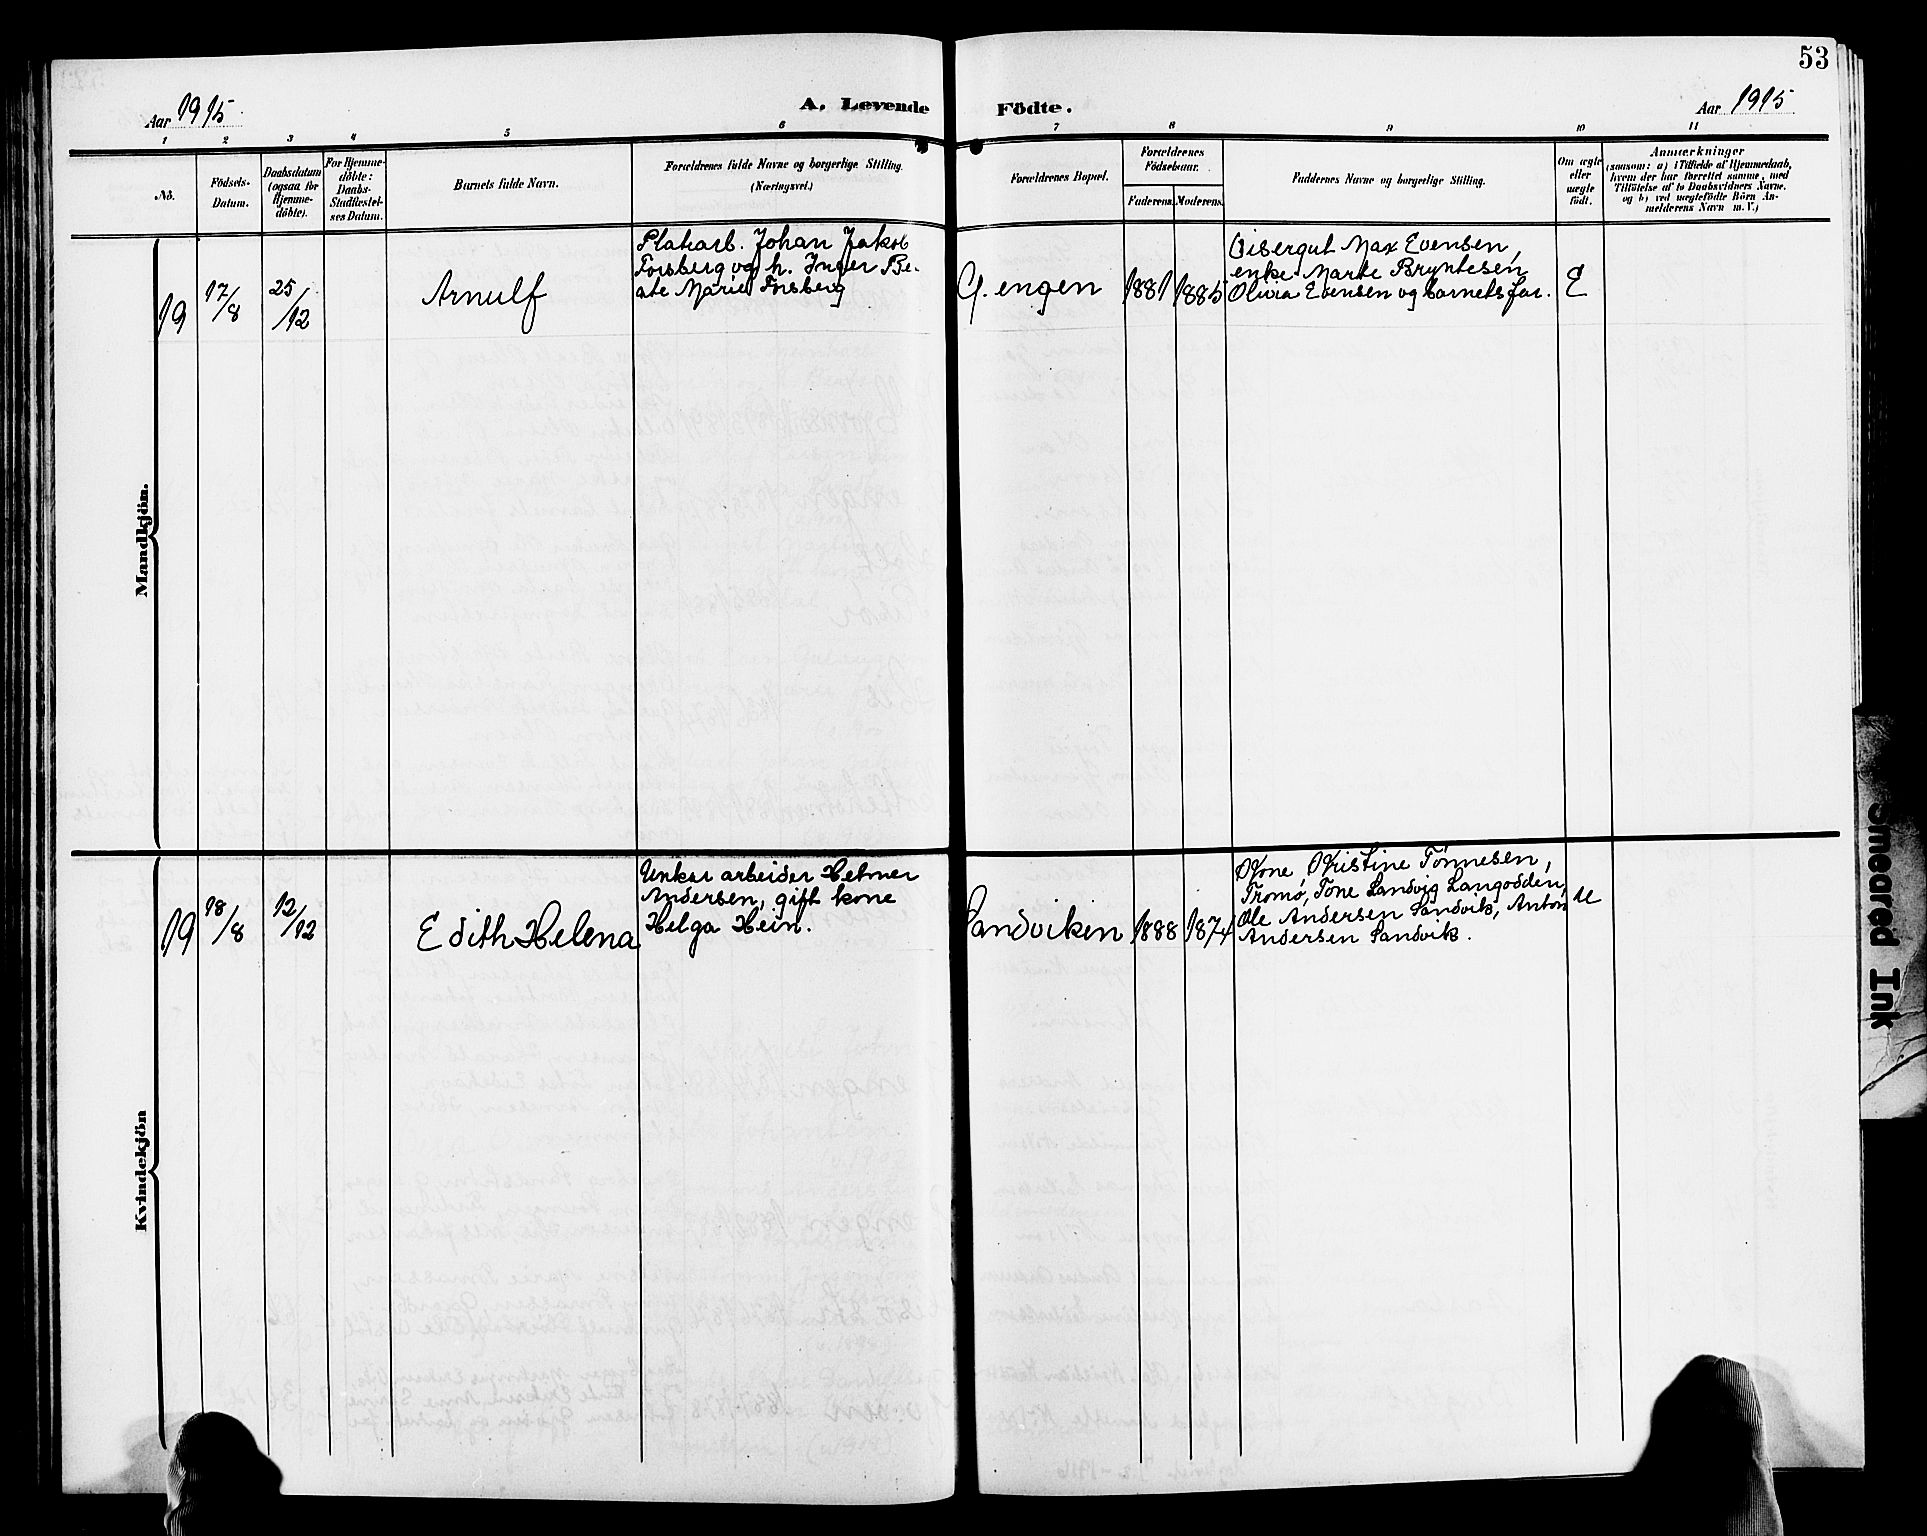 53
Aar 1915.
A. Levende Födte.
Aar 1915
1 2 3 4 5 6 7 8 9 10 11
No.
Födsels-
Datum.
Daabsdatum
(ogsaa for
Hjemme-
döbte).
For Hjemme-
döbte:
Daabs-
Stadfæstel-
ses Datum.
Barnets fulde Navn.
Forældrenes fulde Navne og borgerlige Stilling.
(Næringsvei.)
Forældrenes Bopæl.
Forældrenes
Födselsaar.
Faderens.
Moderens.
Faddernes Navne og borgerlige Stilling.
Om ægte
eller
uægte
født.
Anmærkninger
(saasom: a) i Tilfælde af Hjemmedaab,
hvem der har forrettet samme, med
Tilföielse af to Daabsvidners Navne.
og b) ved uægtefödte Börn An-
melderens Navn m. V.)
Mandkjön.
19
17/8
25/12
Arnulf
Platarb. Johan Jakob
Forsberg og h. Inger Be-
ate Marie Forsberg
G. engen
1881
1885
Visergut Max Evensen,
enke Marte Bryntesen,
Olivia Evensen og barnets far.
E
Kvindekjön
19
18/8
12/12
Edith Helena
Unkar arbeider Helmer
Andersen, gift kone
Helga Hein.
Sandviken
1888
1874
Kone Kristine Tønnesen,
Tromø, Tone Sandvig Langodden,
Ole Andersen Sandvik, Anton
Andersen Sandvik.
U
Smeared Ink